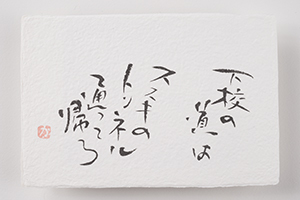 下校の
道は
ススキの
トンネル
通って
帰ろ